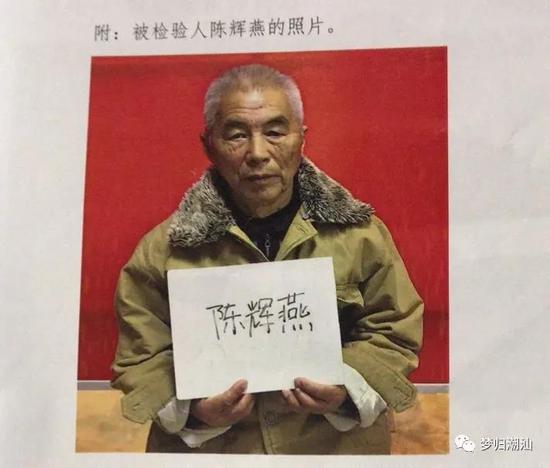 附：被检验人陈辉燕的照片。
陈辉燕
梦归潮汕